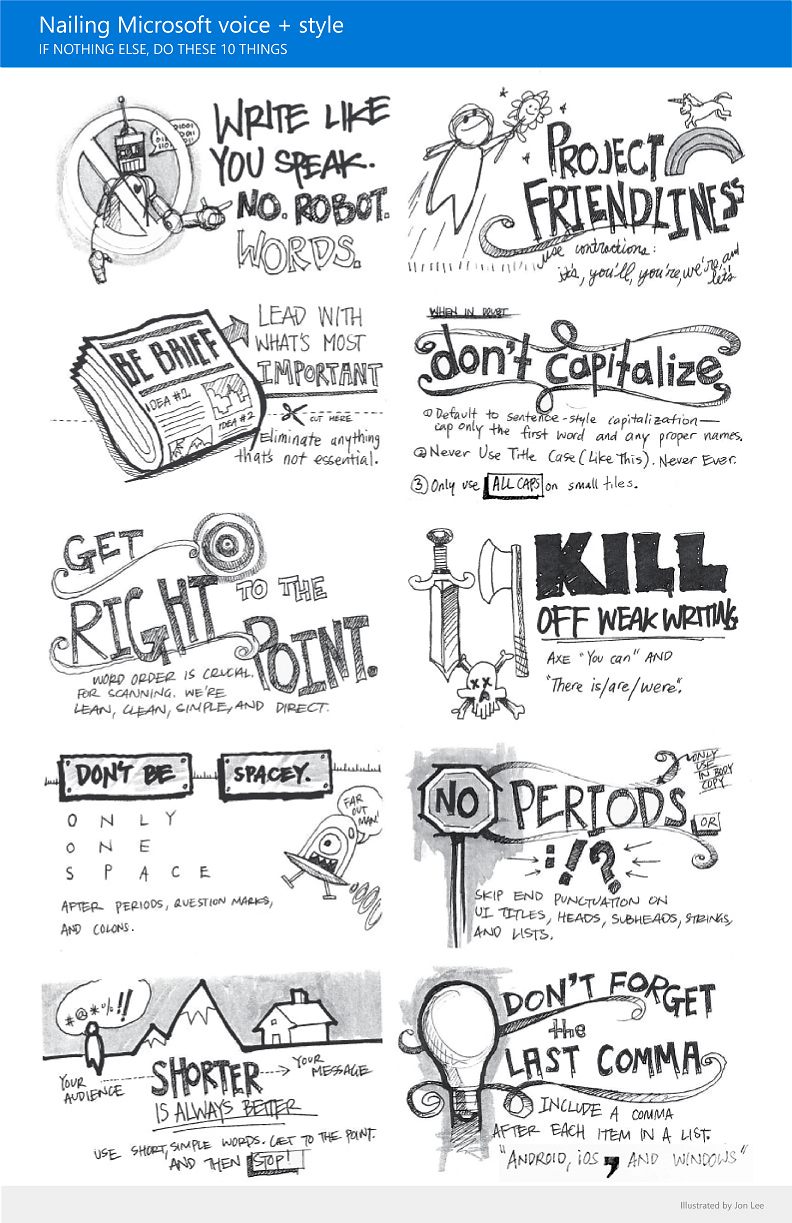 Nailing Microsoft voice + style
IF NOTHING ELSE, DO THESE 10 THINGS
WRITE LIKE
YOU SPEAK.
NO. ROBOT.
WORDS.
PROJECT
FRIENDLINESS
use contractions:
it's, you'll, you're, we're, and
let's
BE BRIEF
IDEA #1
IDEA #2
LEAD WITH
WHAT'S MOST
IMPORTANT
CUT HERE
Eliminate anything
that's not essential.
WHEN IN DOUBT
don't capitalize
① Default to sentence-style capitalization—
cap only the first word and any proper names.
② Never Use Title Case (Like This). Never Ever.
③ Only use ALL CAPS on small tiles.
GET
RIGHT TO THE
POINT.
WORD ORDER IS CRUCIAL
FOR SCANNING. WE'RE
LEAN, CLEAN, SIMPLE, AND DIRECT.
KILL
OFF WEAK WRITING
AXE "You can" AND
"There is/are/were".
DON'T BE SPACEY.
ONLY
ONE
SPACE
AFTER PERIODS, QUESTION MARKS,
AND COLONS.
FAR
OUT
MAN!
NO PERIODS
ONLY
USE
IN BODY
COPY
OR
:!?
SKIP END PUNCTUATION ON
UI TITLES, HEADS, SUBHEADS, STRINGS,
AND LISTS.
#@*%!!
YOUR
AUDIENCE
SHORTER
YOUR
MESSAGE
IS ALWAYS BETTER
USE SHORT, SIMPLE WORDS. GET TO THE POINT.
AND THEN STOP!
DON'T FORGET
the
LAST COMMA
INCLUDE A COMMA
AFTER EACH ITEM IN A LIST.
"ANDROID, iOS, AND WINDOWS"
Illustrated by Jon Lee